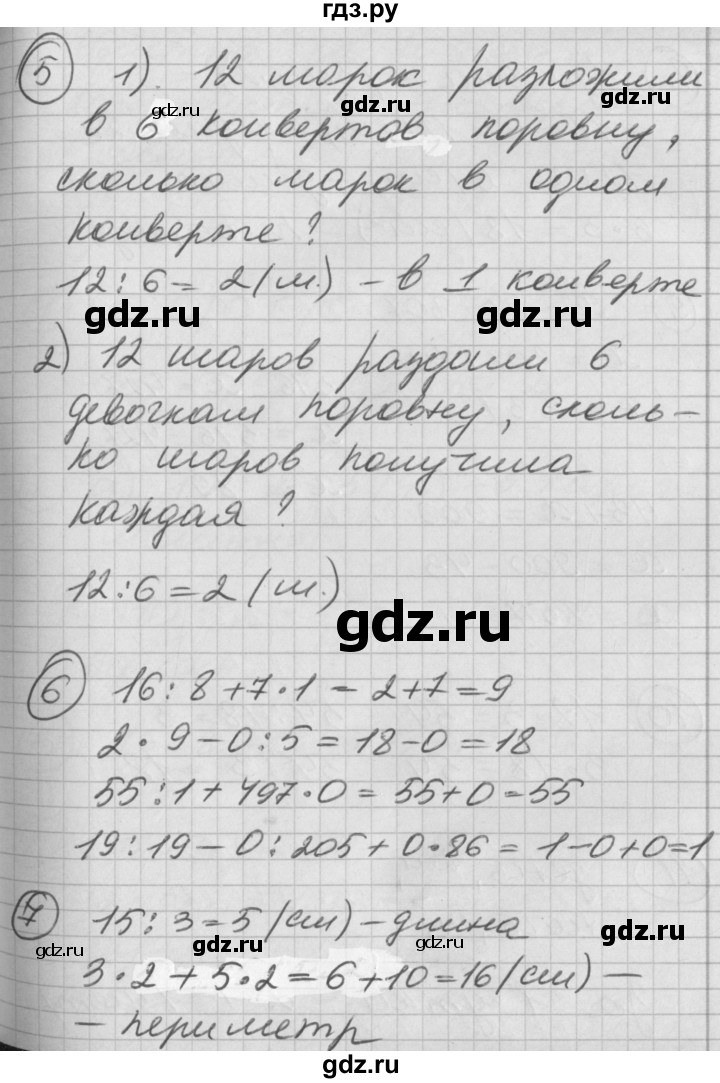 гдз.ру
5 1) 12 марок разложили
в 6 конвертов поровну,
сколько марок в одном
конверте?
12:6=2(м.) – в 1 конверте
gdz.ru gdz.ru
2) 12 шаров раздали 6
девочкам поровну, сколь-
ко шаров получила
каждая?
12:6=2(ш.)
gdz.ru
6 16:8+7·1=2+7=9
2·9-0:5=18-0=18
55:1+497·0=55+0=55
19:19-0:205+0·86=1-0+0=1
7 15:3=5(см)-длина
3·2+5·2=6+10=16(см) –
– периметр
gdz.ru
gdz.ru
gdz.ru
gdz.ru
gdz.ru
gdz.ru
gdz.ru
gdz.ru
gdz.ru
gdz.ru
gdz.ru
gdz.ru